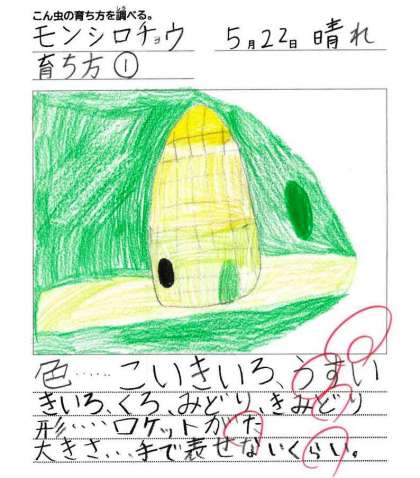 こん虫の育ち方を調べる。
モンシロチョウ 5月22日 晴れ
育ち方①
色……こいきいろ、うすい
きいろ、くろ、みどり、きみどり
形…‥ロケットがた
大きさ…手で表せないくらい。